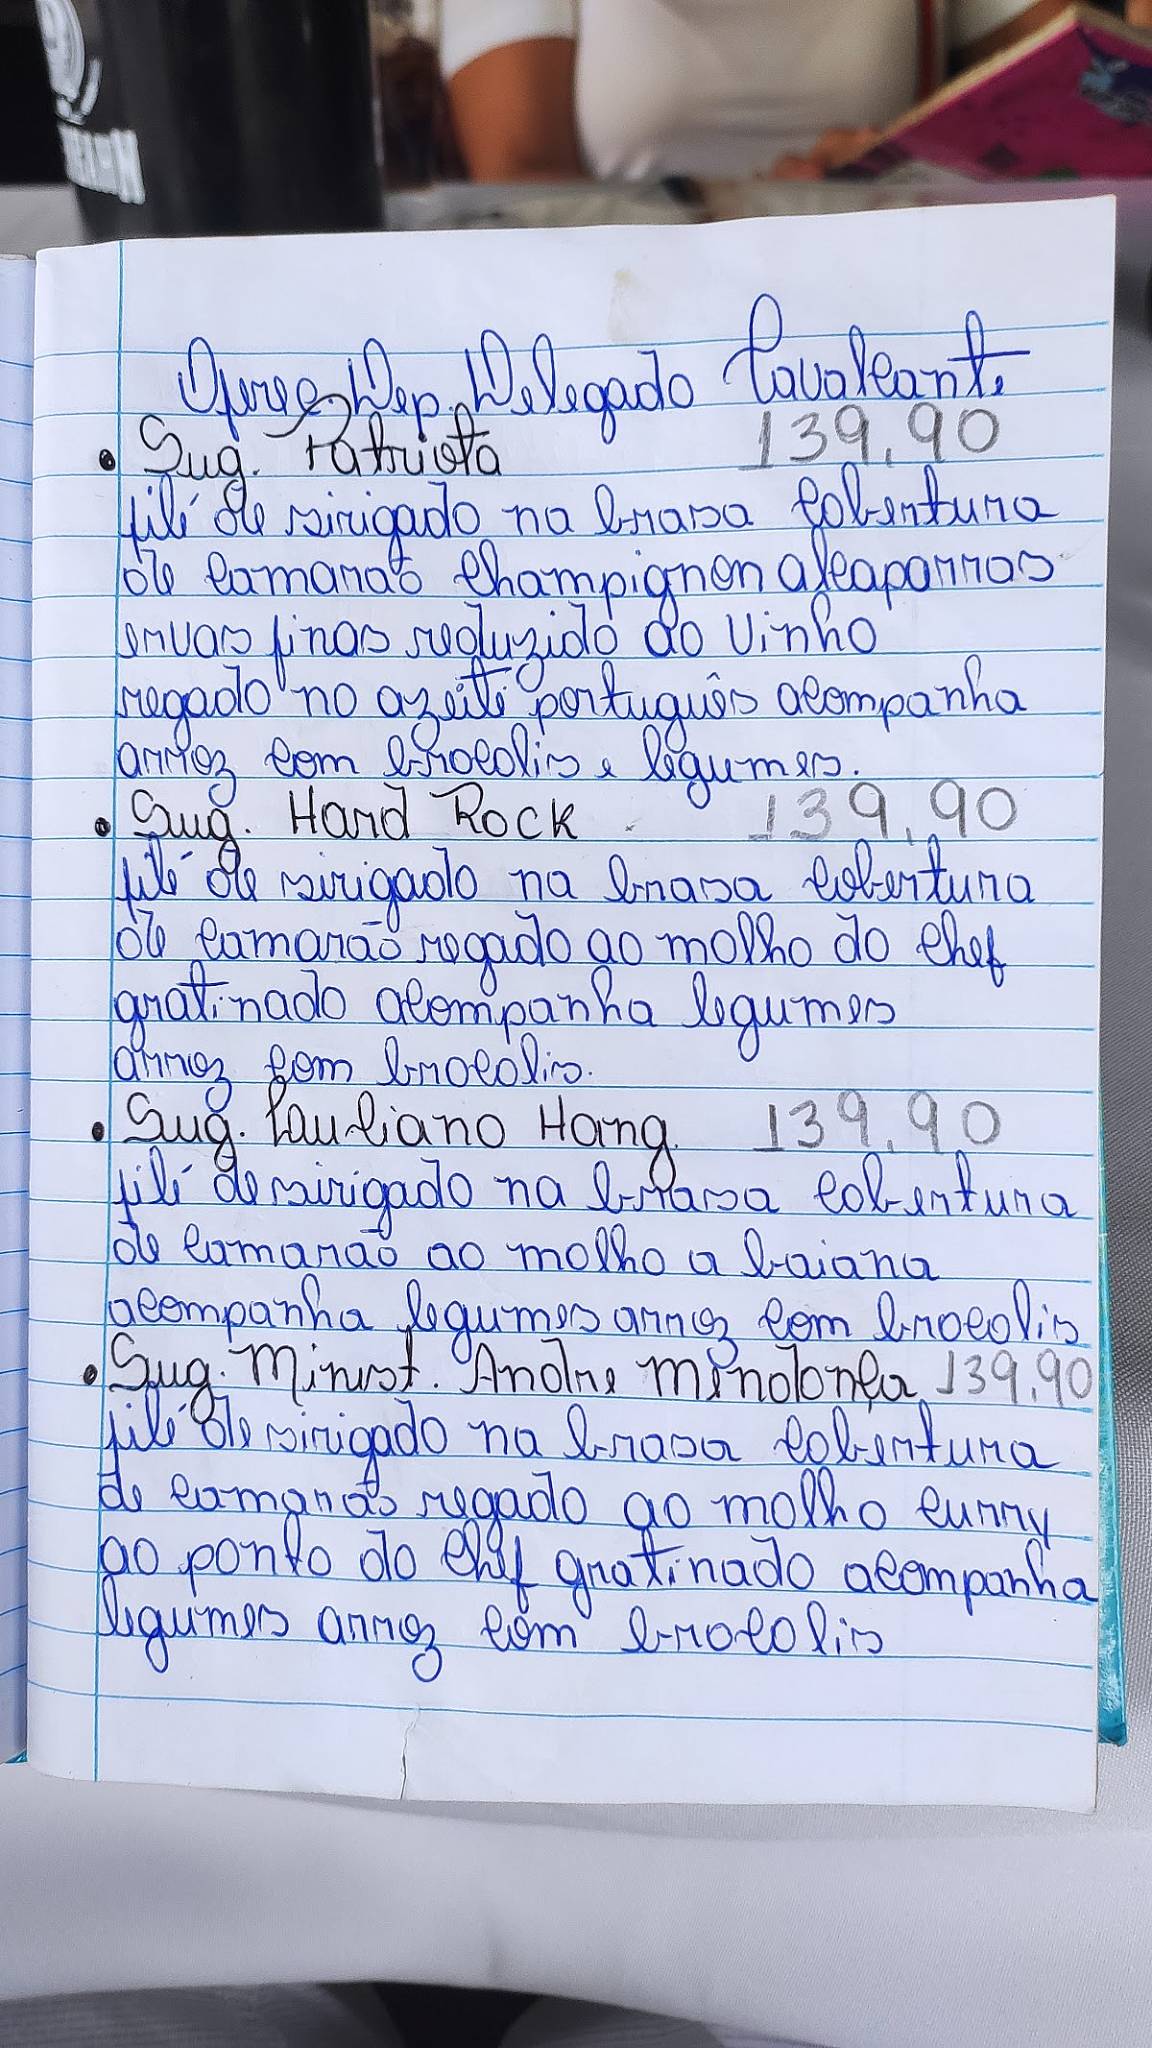 Oferec Dep. Delegado Cavalcante
• Sug. Patriota 139,90
filé de sirigado na brasa cobertura
de camarão champignon alcaparras
ervas finas reduzido ao vinho
regado no azeite português acompanha
arroz com brocolis e legumes.
• Sug. Hard Rock 139,90
filé de sirigado na brasa cobertura
de camarão regado ao molho do chef
gratinado acompanha legumes
arroz com brocolis.
• Sug. Lauliano Hang 139,90
filé de sirigado na brasa cobertura
de camarão ao molho a baiana
acompanha legumes arroz com brocolis
• Sug. Minist. Andre Mendonça 139,90
filé de sirigado na brasa cobertura
de camarão regado ao molho curry
ao ponto do chef gratinado acompanha
legumes arroz com brocolis